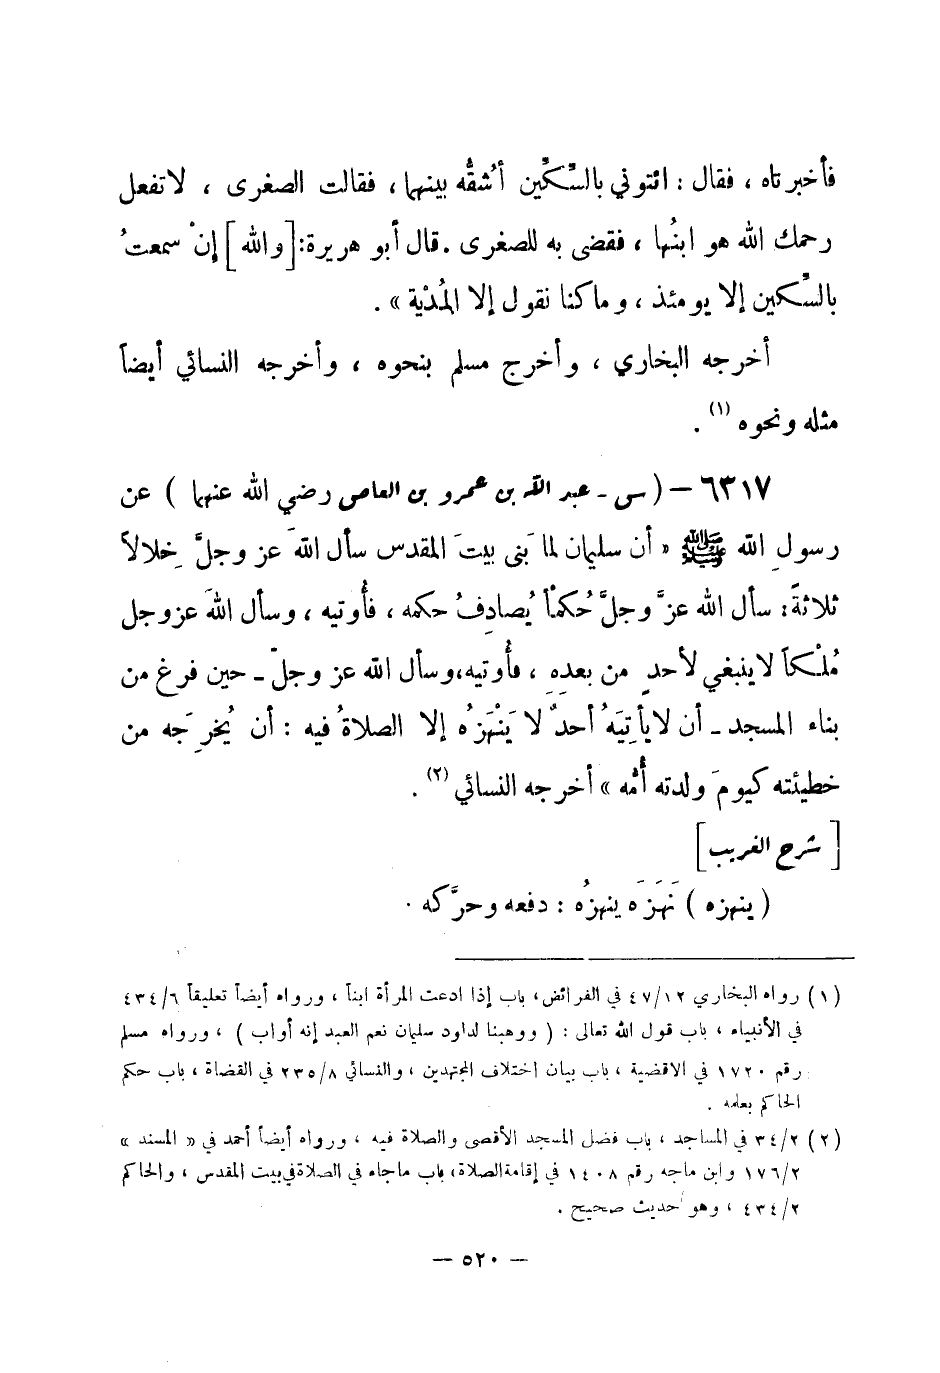 فأخبرتاه ، فقال : ائتوني بالسِّكِّين أشُقُّه بينهما ، فقالت الصغرى ، لا تفعل
رحمك الله هو ابنُها ، فقضى به للصغرى . قال أبو هريرة : [ والله ] إنْ سمعتُ
بالسِّكين إلا يومئذ ، وما كنا نقول إلا المُدْيَة » .
أخرجه البخاري ، وأخرج مسلم بنحوه ، وأخرجه النسائي أيضاً
مثله ونحوه (١) .
٦٣١٧ – ( س ـ عبد الله بن عمرو بن العاص رضي الله عنهما ) عن
رسولِ الله ﷺ « أن سليمان لما بَنى بيتَ المقدس سأل اللهَ عز وجلَّ خِلالاً
ثلاثةً : سأل الله عزَّ وجلَّ حُكماً يُصادِفُ حكمه ، فأُوتيه ، وسأل اللهَ عز وجل
مُلْكاً لا ينبغي لأحدٍ من بعدِهِ ، فأُوتيه، وسأل الله عز وجلّ ـ حين فرغ من
بناء المسجد ـ أن لا يأتِيَهُ أحدٌ لا يَنْهَزُه إلا الصلاةُ فيه : أن يُخرِجَه من
خطيئته كيومَ ولدته أُمُّه » أخرجه النسائي (٢) .
[ شرح الغريب ]
( ينهزه ) نَهَزَه ينهزُه : دفعه وحرَّكه .
(١) رواه البخاري ٤٧/١٢ في الفرائض ، باب إذا ادعت المرأة ابناً ، ورواه أيضاً تعليقاً ٤٣٤/٦
في الأنبياء ، باب قول الله تعالى : ( ووهبنا لداود سليمان نعم العبد إنه أواب ) ، ورواه مسلم
رقم ١٧٢٠ في الاقضية ، باب بيان اختلاف المجتهدين ، والنسائي ٢٣٥/٨ في القضاة ، باب حكم
الحاكم بعلمه .
(٢) ٣٤/٢ في المساجد ، باب فضل المسجد الأقصى والصلاة فيه ، ورواه أيضاً أحمد في « المسند »
١٧٦/٢ وابن ماجه رقم ١٤٠٨ في إقامة الصلاة ، باب ماجاء في الصلاة في بيت المقدس ، والحاكم
٤٣٤/٢ ، وهو حديث صحيح .
— ٥٢٠ —